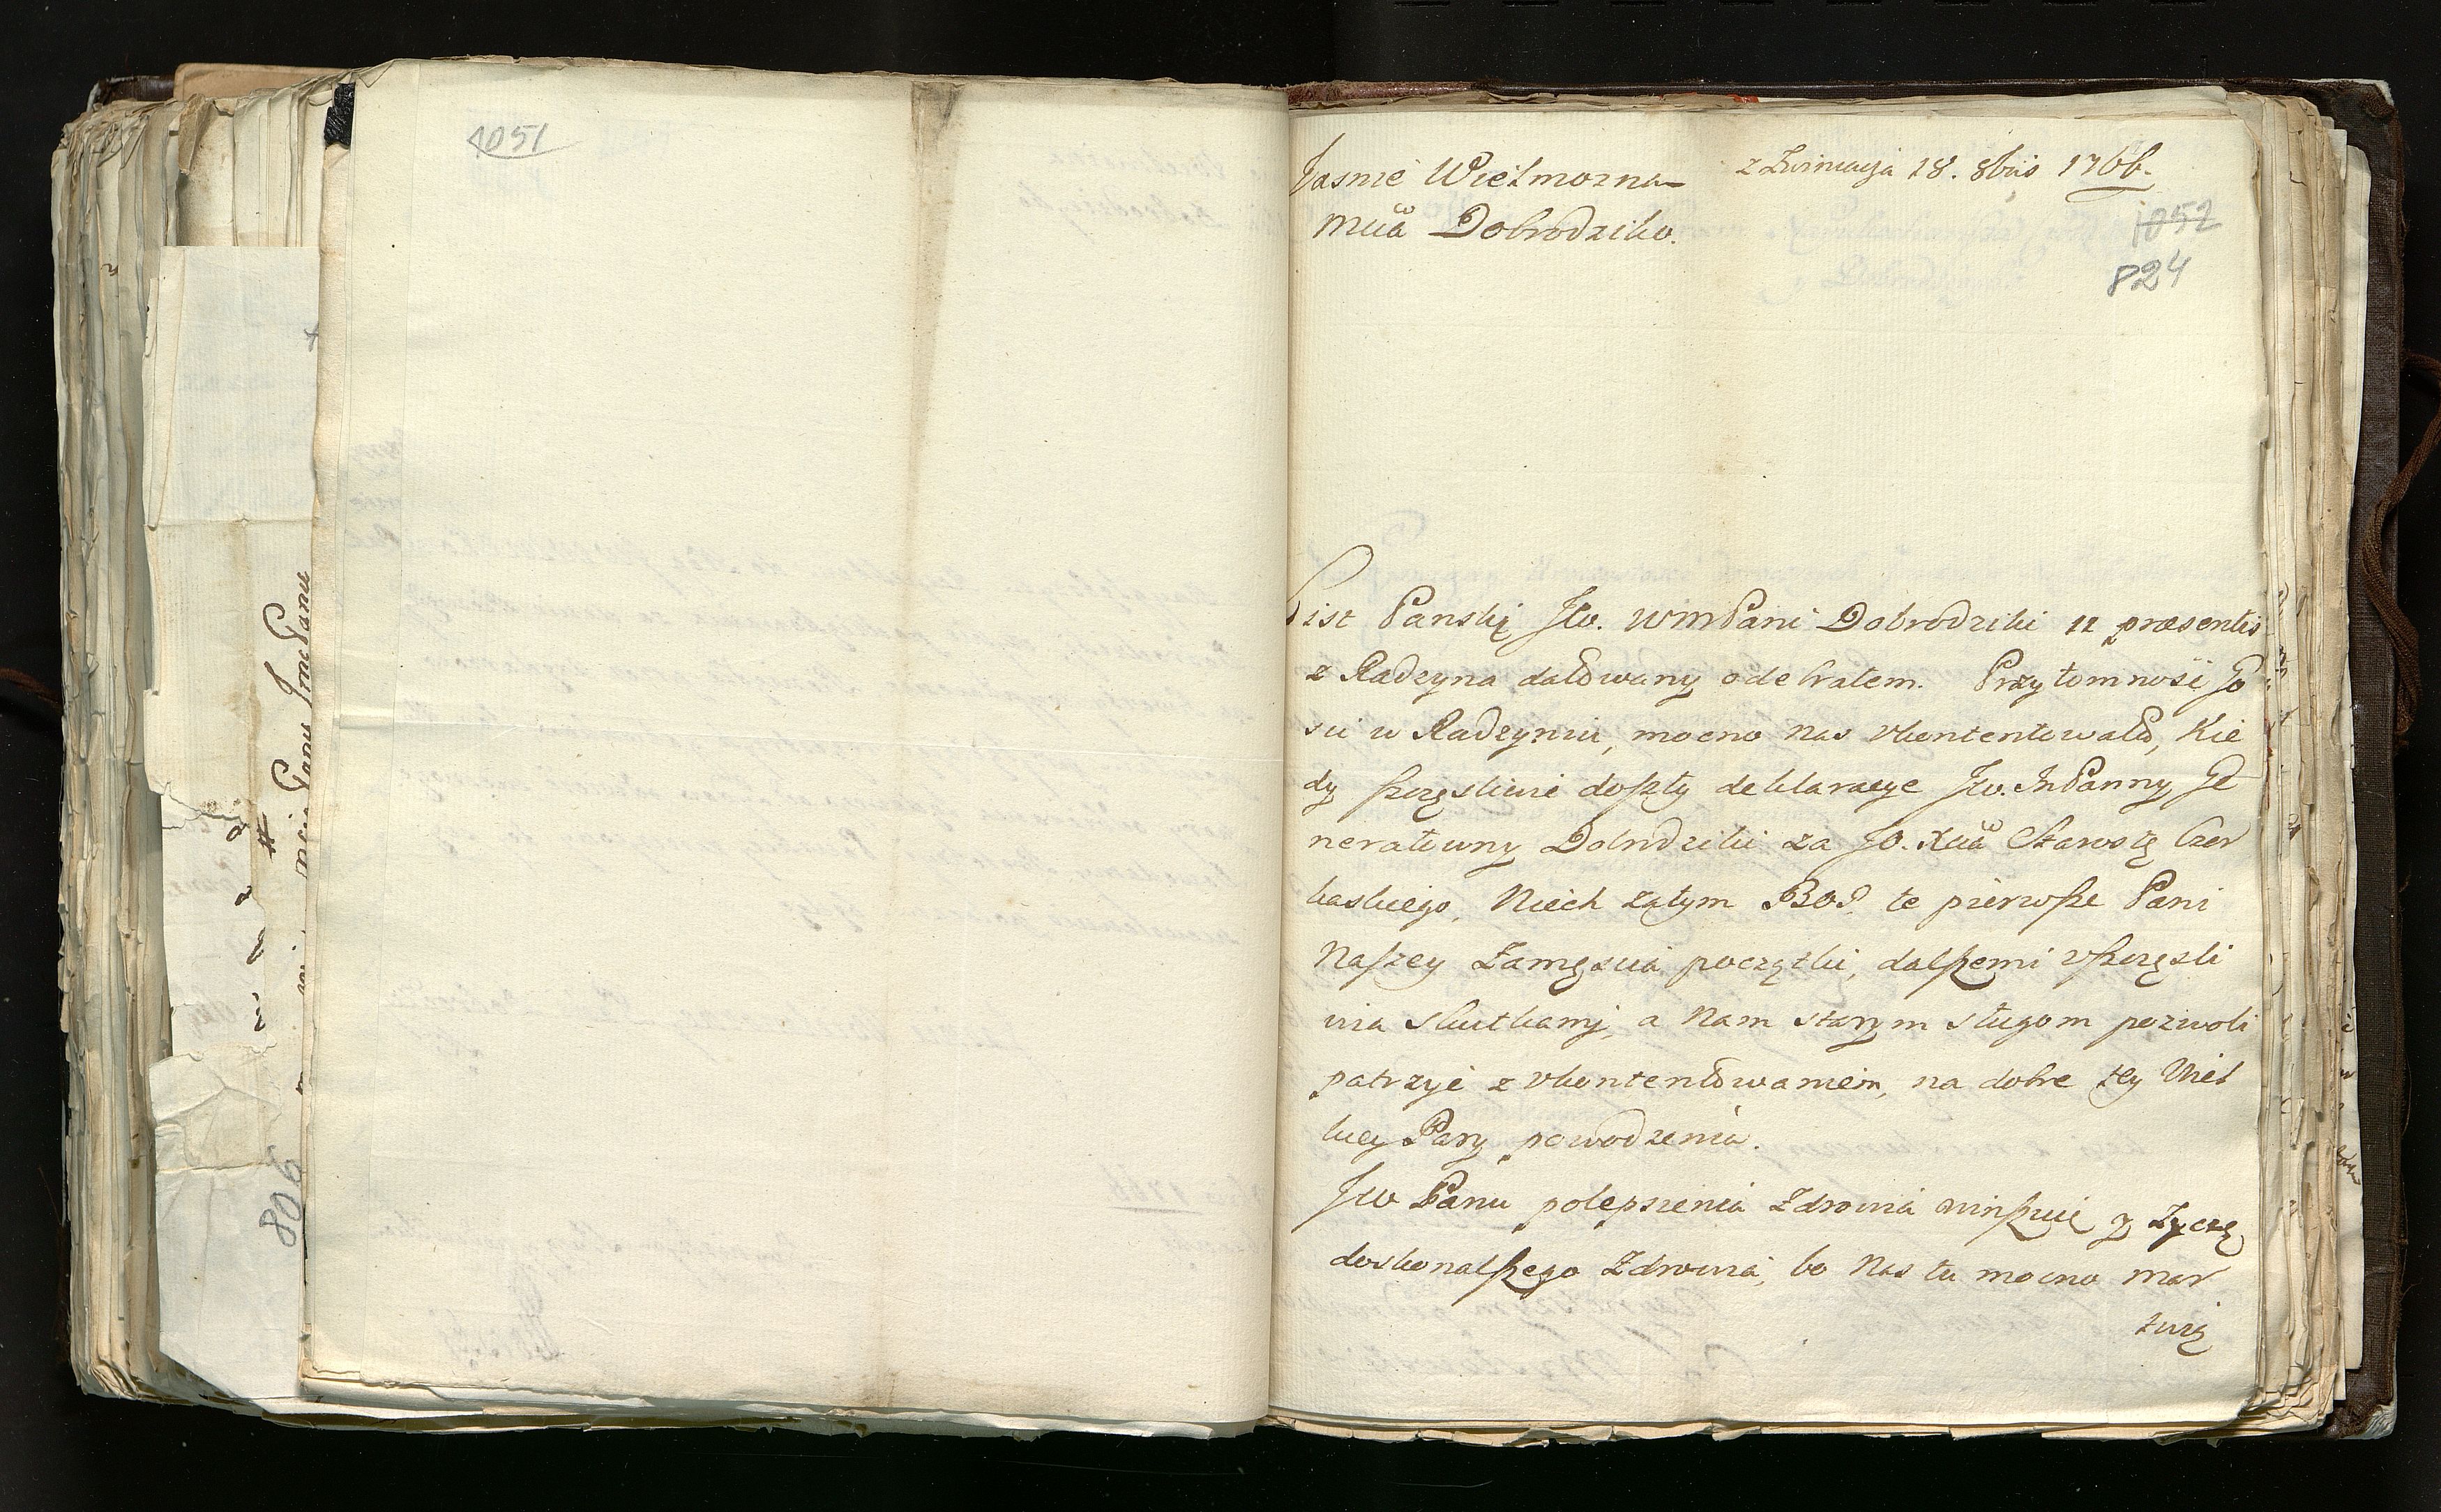 1051
Jmć Panu
806
Jasnie Wielmozna
z Zwiniacza 18. 8bris 1766.
Mcia Dobrodziko.
1052
824
List Panski JW. WMPani Dobrodziki 12 præsentis
z Radzyna datowany odebrałem. Przytomność Go
sci w Radzyniu, mocno nas vkontentowała, Kie
dy szczęsliwie doszły deklaracye JW. InPanny Ge
nerałowny Dobrodziki za JO. Xcia Starostę Czer
kaskiego, Niech zatym BOG te pierwsze Pani
Naszey Zamęscia początki, dalszemi vszczęsli
wia skutkami, a Nam starym sługom pozwoli
patrzyć z vkontentowaniem, na dobre tey Wiel
kiey Pary powodzenia.
JW Panu polepszenia Zdrowia winszuię y Zyczę
doskonalszego Zdrowia, bo Nas tu mocno mar
twią